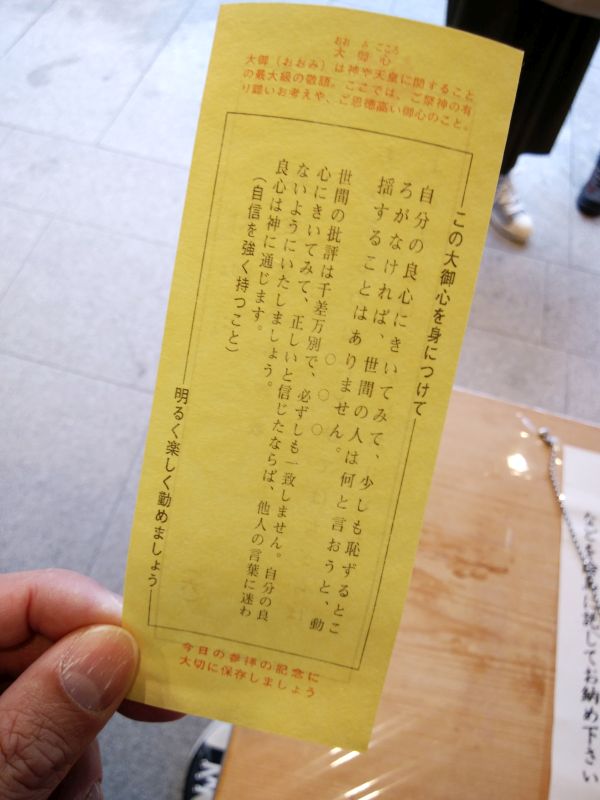 おお み こころ
大御心
大御（おおみ）は神や天皇に関すること
の最大級の敬語。ここでは、ご祭神の有
り難いお考えや、ご恩徳高い御心のこと。
この大御心を身につけて
自分の良心にきいてみて、少しも恥ずるとこ
ろがなければ、世間の人は何と言おうと、動
揺することはありません。
○ ○ ○
世間の批評は千差万別で、必ずしも一致しません。自分の良
心にきいてみて、正しいと信じたならば、他人の言葉に迷わ
ないようにいたしましょう。
良心は神に通じます。
（自信を強く持つこと）
明るく楽しく勤めましょう
今日の参拝の記念に
大切に保存しましょう
してお納め下さい